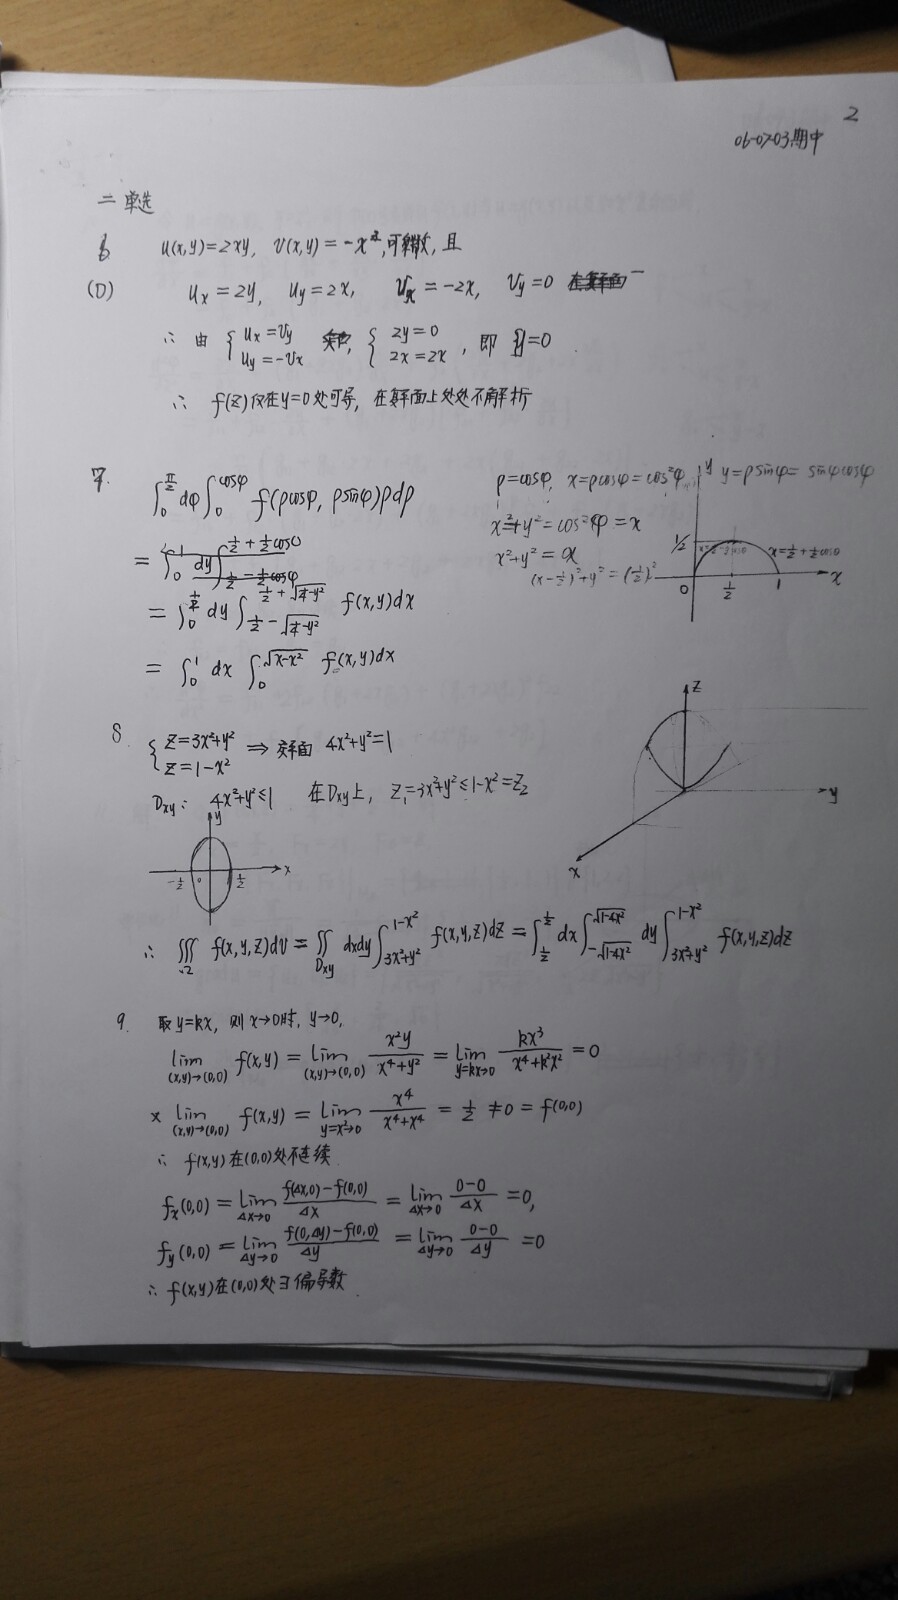 2
06-07-03期中
二 单选
6 u(x,y)=2xy, v(x,y)=-x², 可微, 且
(D) u_x=2y, u_y=2x, v_x=-2x, v_y=0
∴ 由 { u_x=v_y, u_y=-v_x { 2y=0, 2x=2x , 即 y=0
∴ f(z)仅在y=0处可导, 在复平面上处处不解析
7. ∫_0^{π/2} dφ ∫_0^{cosφ} f(ρcosφ, ρsinφ)ρdρ
ρ=cosφ, x=ρcosφ=cos²φ, y=ρsinφ=sinφcosφ
x²+y²=cos²φ=x
x²+y²=x
(x-1/2)²+y²=(1/2)²
y 1/2 x=1/2+1/2cosθ
0 1/2 1 x
= ∫_0^1 dy ∫_{1/2-1/2cosφ}^{1/2+1/2cosθ}
= ∫_0^{1/2} dy ∫_{1/2-√(1/4-y²)}^{1/2+√(1/4-y²)} f(x,y)dx
= ∫_0^1 dx ∫_0^{√(x-x²)} f(x,y)dx
8. { z=3x²+y², z=1-x² ⇒ 交面 4x²+y²=1
D_xy: 4x²+y²≤1 在D_xy上, z₁=3x²+y²≤1-x²=z₂
y x -1/2 0 1/2
z y x
∴ ∭_Ω f(x,y,z)dv = ∬_{D_xy} dxdy ∫_{3x²+y²}^{1-x²} f(x,y,z)dz = ∫_{1/2}^{1/2} dx ∫_{-√(1-4x²)}^{√(1-4x²)} dy ∫_{3x²+y²}^{1-x²} f(x,y,z)dz
9. 取y=kx, 则x→0时, y→0,
lim_{(x,y)→(0,0)} f(x,y) = lim_{(x,y)→(0,0)} x²y/(x⁴+y²) = lim_{y=kx→0} kx³/(x⁴+k²x²) =0
× lim_{(x,y)→(0,0)} f(x,y) = lim_{y=x²→0} x⁴/(x⁴+x⁴) = 1/2 ≠0 = f(0,0)
∴ f(x,y)在(0,0)处不连续
f_x(0,0) = lim_{Δx→0} (f(Δx,0)-f(0,0))/Δx = lim_{Δx→0} (0-0)/Δx =0,
f_y(0,0) = lim_{Δy→0} (f(0,Δy)-f(0,0))/Δy = lim_{Δy→0} (0-0)/Δy =0
∴ f(x,y)在(0,0)处∃偏导数